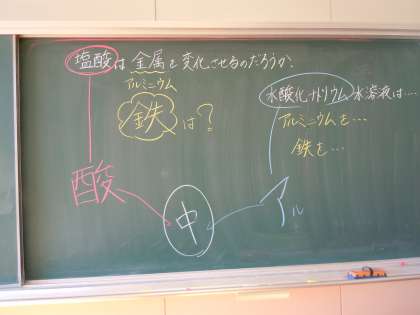 塩酸は金属を変化させるのだろうか。
アルミニウム
鉄は?
水酸化ナトリウム水溶液は…
アルミニウムを…
鉄を…
酸
中
アル